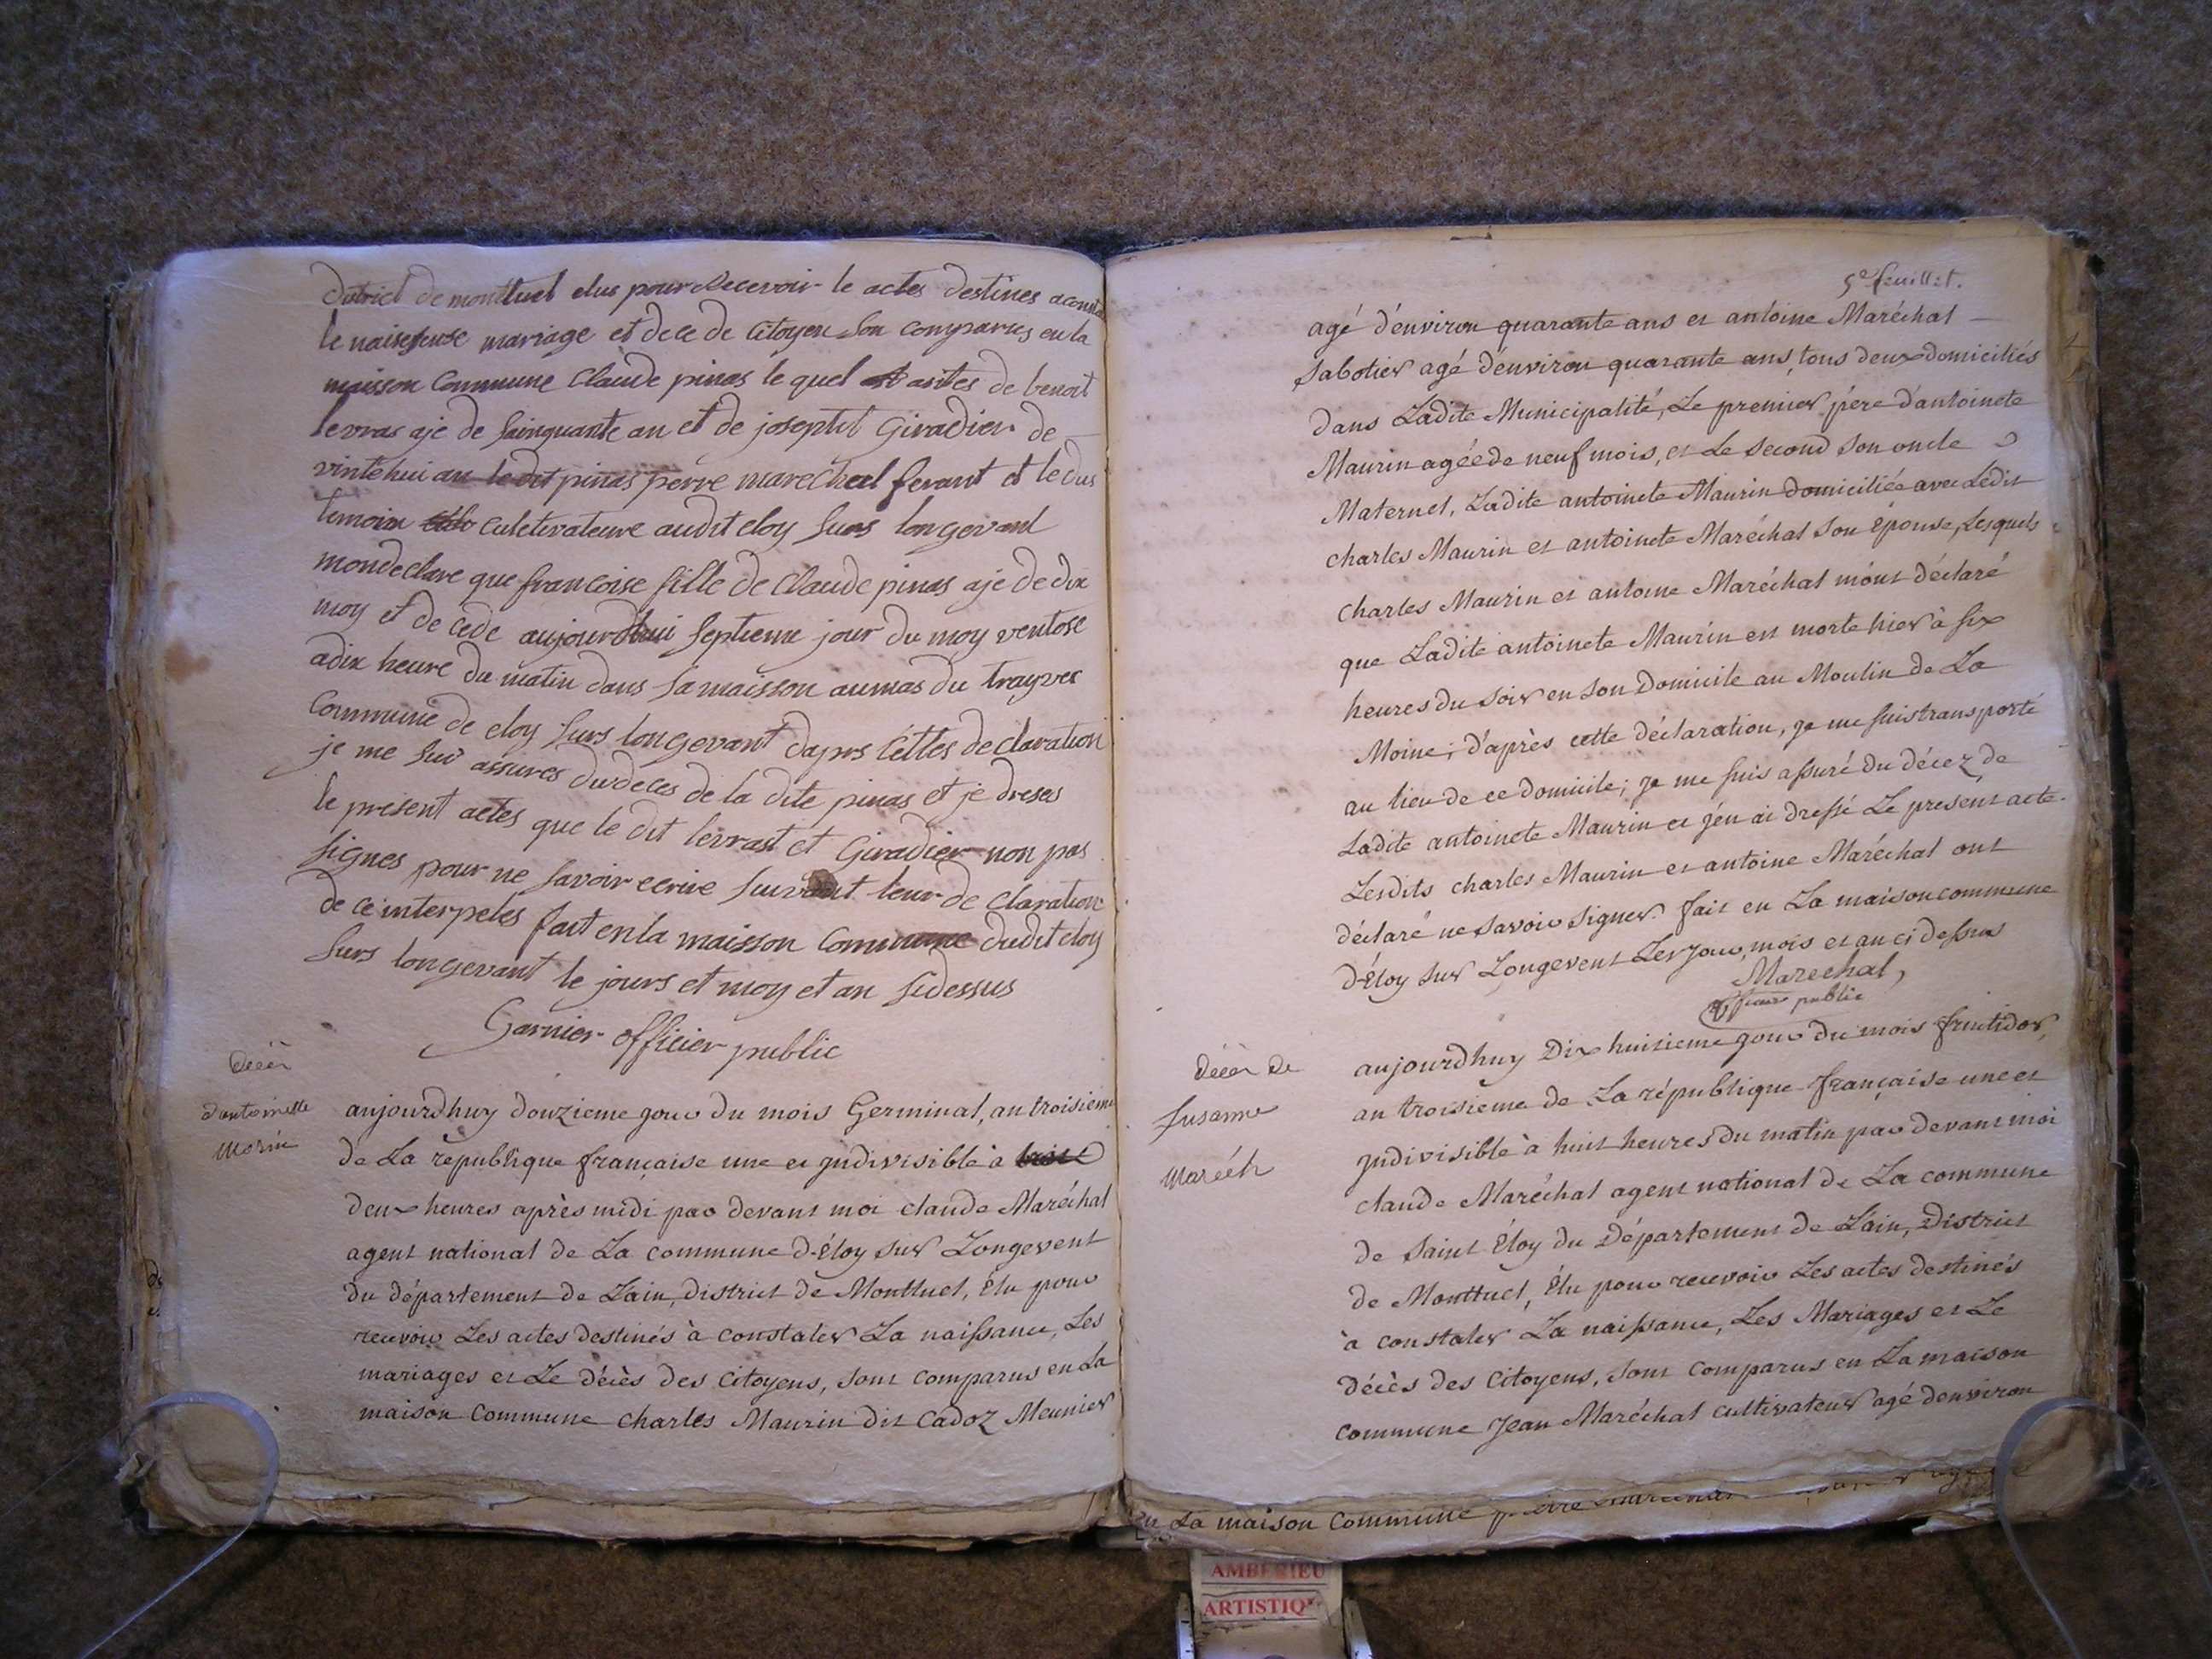 district de montluel elus pour Recevoir le actes destines a
le naissense mariage et dece de Citoyen Son comparus en la
maisson Commune Claude pinas le quel asites de benoit
levras aje de sainquante an et de joseptil Giradier de
vintehui an le dit pinas perre marechal ferant et le dus
temoin culetivateure audit eloy surs longevant
mondeclare que francoise fille de Claude pinas aje de dix
moy et de cede aujourdhui septieme jour du moy ventose
adix heure du matin dans sa maisson aumas du trayver
Commune de eloy surs longevant daprs Cettes declaration
je me sui assures dudeces de la dite pinas et je dreses
le present actes que le dit levrast et Giradier non pas
signes pour ne savoir ecrire suivant leur de claration
de ce interpeles fait en la maisson Commune dudit eloy
surs longevant le jours et moy et an sidessus
Garnier officier public
décès
d'antoinette
Morin
aujourdhuy douzieme jour du mois Germinal, an troisieme
de La république française une et jndivisible à
deux heures après midi par devant moi claude Maréchal
agent national de La commune d'Éloy sur Longevent
du département de L'ain, district de Montluel, Élu pour
recevoir Les actes destinés à constater La naissance, Les
mariages et Le décès des Citoyens, sont comparus en La
maison Commune charles Maurin dit Cadoz Meunier
5e feuillet.
agé d'environ quarante ans et antoine Maréchal
sabotier agé d'environ quarante ans, tous deux domiciliés
dans Ladite Municipalité, Le premier père d'antoinete
Maurin agée de neuf mois, et Le second son oncle
Maternel, Ladite antoinete Maurin domiciliée avec Ledit
charles Maurin et antoinete Maréchal son épouse, Lesquels
charles Maurin et antoine Maréchal m'ont déclaré
que Ladite antoinete Maurin est morte hier à six
heures du soir en son domicile au Moulin de La
Moine; d'après cette déclaration, je me suis transporté
au lieu de ce domicile; je me suis assuré du décez de
Ladite antoinete Maurin et j'en ai dressé Le present acte.
Lesdits charles Maurin et antoine Maréchal ont
déclaré ne savoir signer. fait en La maison commune
d'Éloy sur Longevent Les jour, mois et an ci dessus
Marechal,
officier public
décès de
Susanne
Maréch
aujourdhuy Dix huitieme jour du mois fructidor,
an troisieme de La république française une et
jndivisible à huit heures du matin par devant moi
claude Maréchal agent national de La commune
de Saint Éloy du Département de L'ain, District
de Montluel, Élu pour recevoir Les actes destinés
à constater La naissance, Les Mariages et Le
décès des Citoyens, sont Comparus en La maison
commune Jean Maréchal cultivateur agé denviron
en La maison Commune pierre
AMBERIEU
ARTISTIQ